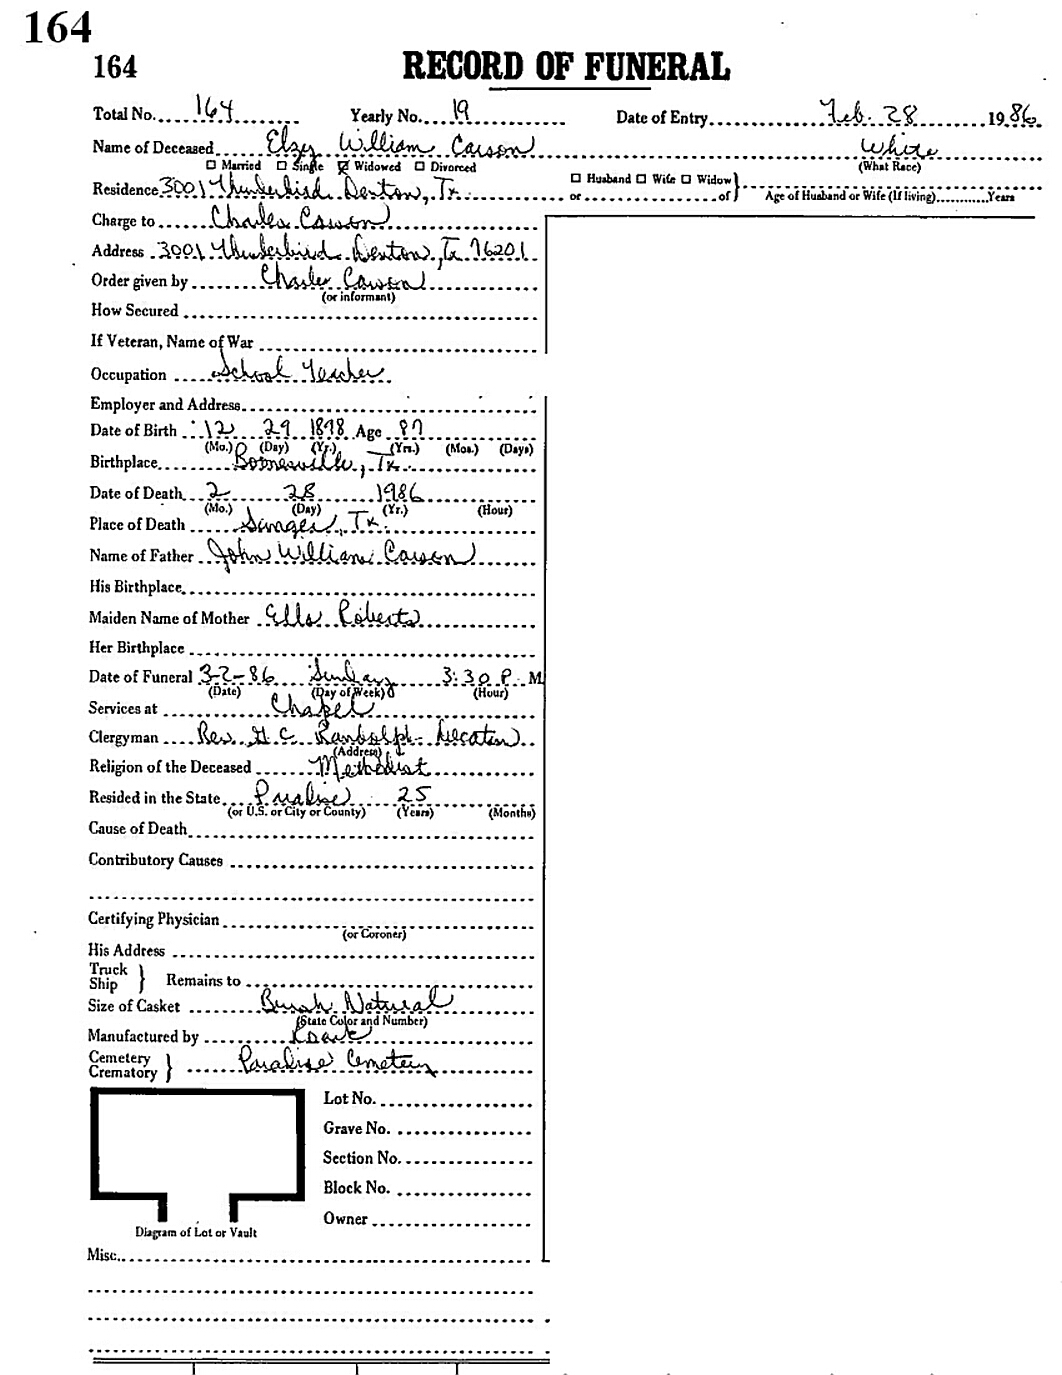 164
164
RECORD OF FUNERAL
Total No. 164 Yearly No. 19 Date of Entry Feb. 28 1986
Name of Deceased Elzy William Carson White
☐ Married ☐ Single ☒ Widowed ☐ Divorced (What Race)
Residence 3001 Thunderbird Denton, Tx. ☐ Husband ☐ Wife ☐ Widow } or of Age of Husband or Wife (If living) Years
Charge to Charles Carson
Address 3001 Thunderbird Denton, Tx 76201
Order given by Charles Carson
(or informant)
How Secured
If Veteran, Name of War
Occupation School Teacher
Employer and Address
Date of Birth 12 29 1898 Age 87
(Mo.) (Day) (Yr.) (Yrs.) (Mos.) (Days)
Birthplace Boonesville, Tx.
Date of Death 2 28 1986
(Mo.) (Day) (Yr.) (Hour)
Place of Death Sanger, Tx.
Name of Father John William Carson
His Birthplace
Maiden Name of Mother Ella Roberts
Her Birthplace
Date of Funeral 3-2-86 Sunday 3:30 P. M
(Date) (Day of Week) (Hour)
Services at Chapel
Clergyman Rev. G. C. Randolph - Decatur
(Address)
Religion of the Deceased Methodist
Resided in the State Paradise 25
(or U.S. or City or County) (Years) (Months)
Cause of Death
Contributory Causes
Certifying Physician
(or Coroner)
His Address
Truck
Ship } Remains to
Size of Casket Natural
(State Color and Number)
Manufactured by
Cemetery
Crematory } Paradise Cemetery
Lot No.
Grave No.
Section No.
Block No.
Owner
Diagram of Lot or Vault
Misc.